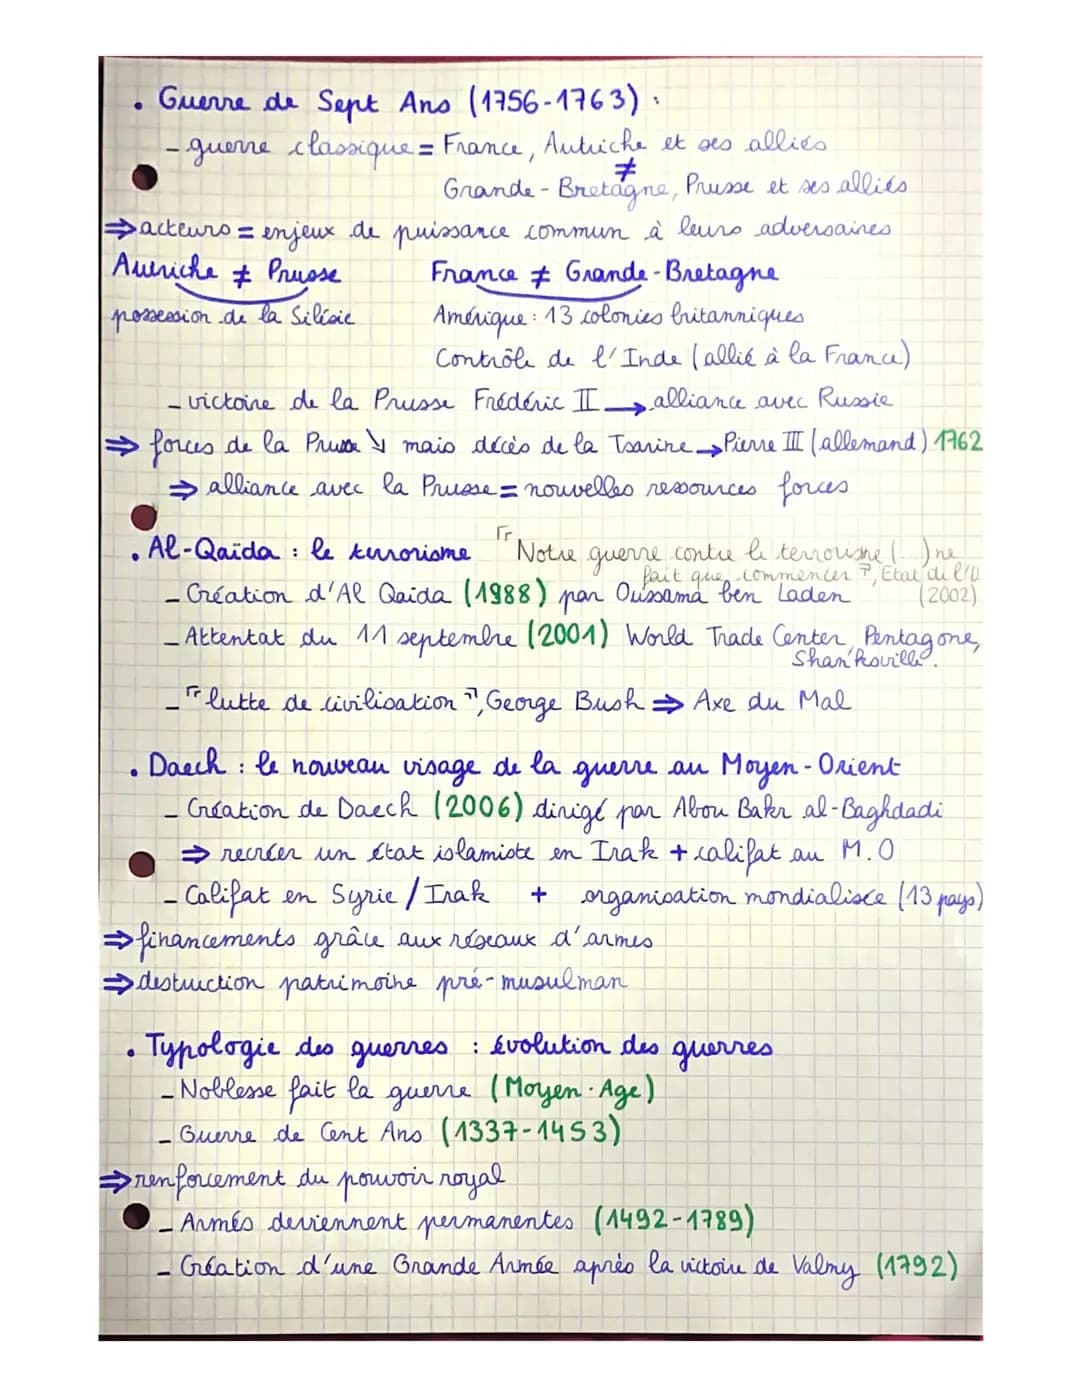 • Guerre de Sept Ans (1756-1763) :
- guerre classique = France, Autriche et ses alliés
≠
Grande-Bretagne, Prusse et ses alliés
⇒ acteurs = enjeux de puissance commun à leurs adversaires
Autriche ≠ Prusse France ≠ Grande-Bretagne
possession de la Silésie Amérique : 13 colonies britanniques
Contrôle de l'Inde (allié à la France)
- victoire de la Prusse Frédéric II → alliance avec Russie
⇒ forces de la Prusse ↘ mais décès de la Tsarine → Pierre III (allemand) 1762
⇒ alliance avec la Prusse = nouvelles ressources forces
• Al-Qaïda : le terrorisme "Notre guerre contre le terrorisme (...) ne
fait que commencer", Etat de l'U
- Création d'Al Qaida (1988) par Oussama ben Laden (2002)
- Attentat du 11 septembre (2001) World Trade Center, Pentagone,
Shanksville.
- "lutte de civilisation", George Bush ⇒ Axe du Mal
• Daech : le nouveau visage de la guerre au Moyen-Orient
- Création de Daech (2006) dirigé par Abou Bakr al-Baghdadi
⇒ recréer un état islamiste en Irak + califat au M.O
- Califat en Syrie / Irak + organisation mondialisée (13 pays)
⇒ financements grâce aux réseaux d'armes
⇒ destruction patrimoine pré-musulman
• Typologie des guerres : évolution des guerres
- Noblesse fait la guerre (Moyen-Age)
- Guerre de Cent Ans (1337-1453)
⇒ renforcement du pouvoir royal
- Armés deviennent permanentes (1492-1789)
- Création d'une Grande Armée après la victoire de Valmy (1792)